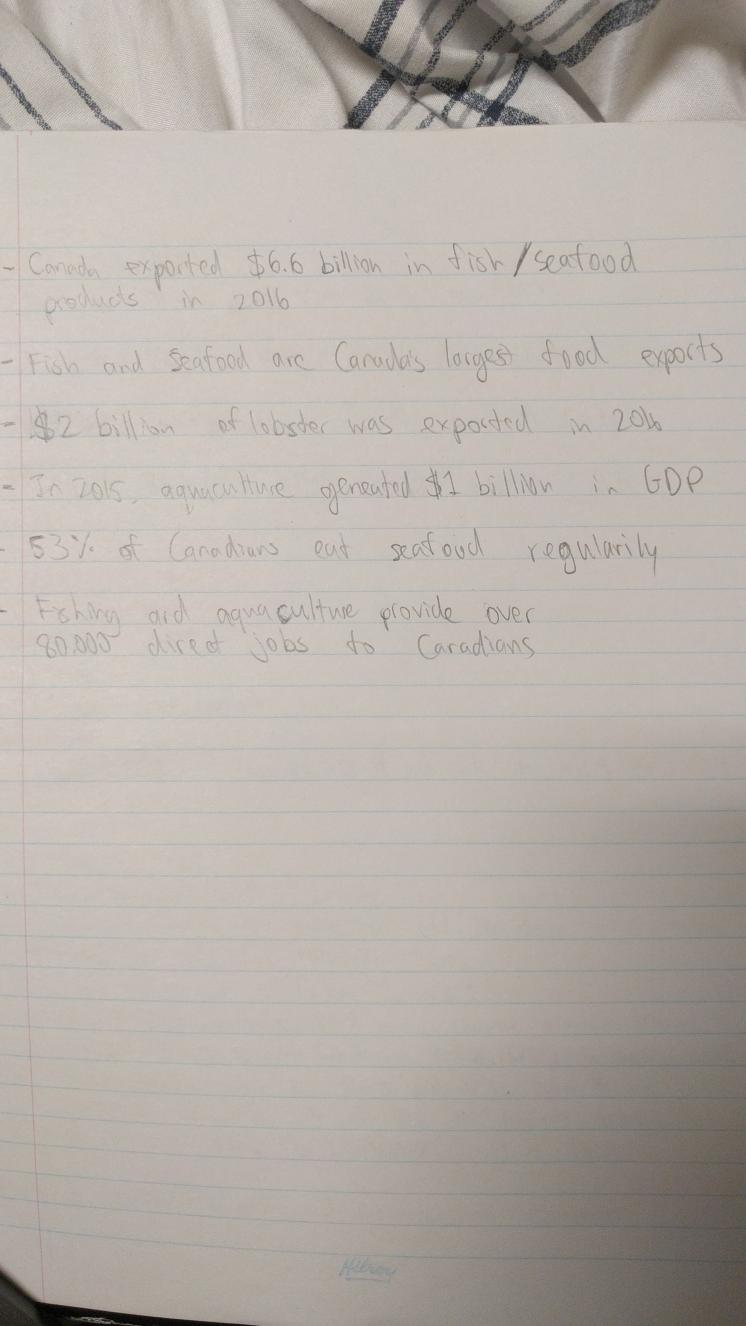 - Canada exported $6.6 billion in fish/seafood
products in 2016
- Fish and Seafood are Canada's largest food exports
- $2 billion of lobster was exported in 2016
- In 2015, aquaculture generated $1 billion in GDP
- 53% of Canadians eat seafood regularily
- Fishing and aquaculture provide over
80,000 direct jobs to Canadians
Hilroy